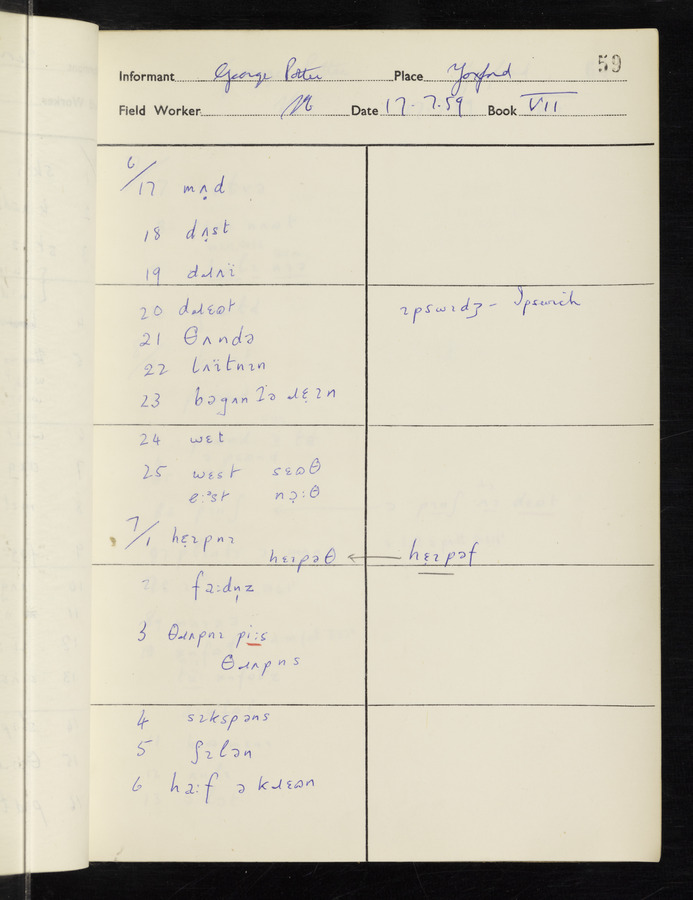 59
Informant George Potter Place Yoxford
Field Worker Date 17-7.59 Book VII
6/17 mʌ̣d
18 dʌ̣st
19 dɹʌï
20 dɹɛɷt ɪpswɪdʒ – Ipswich
21 θʌndə
22 lʌïtnɪn
23 bəgʌn ɹɛ̣ɪn
24 wɛt
25 wɛst sɛɷθ
e:ᵊst nɔ̣:θ
7/1 hɛ̣ɪpnɪ
hɛɪpəθ ← hɛ̣ɪpəf
2 fɑ:dn̩z
3 θɹʌpnɪ pi:s
θɹʌpns
4 sɪkspəns
5 ʃɪlən
6 hɑ:f ə kɹɛɷn